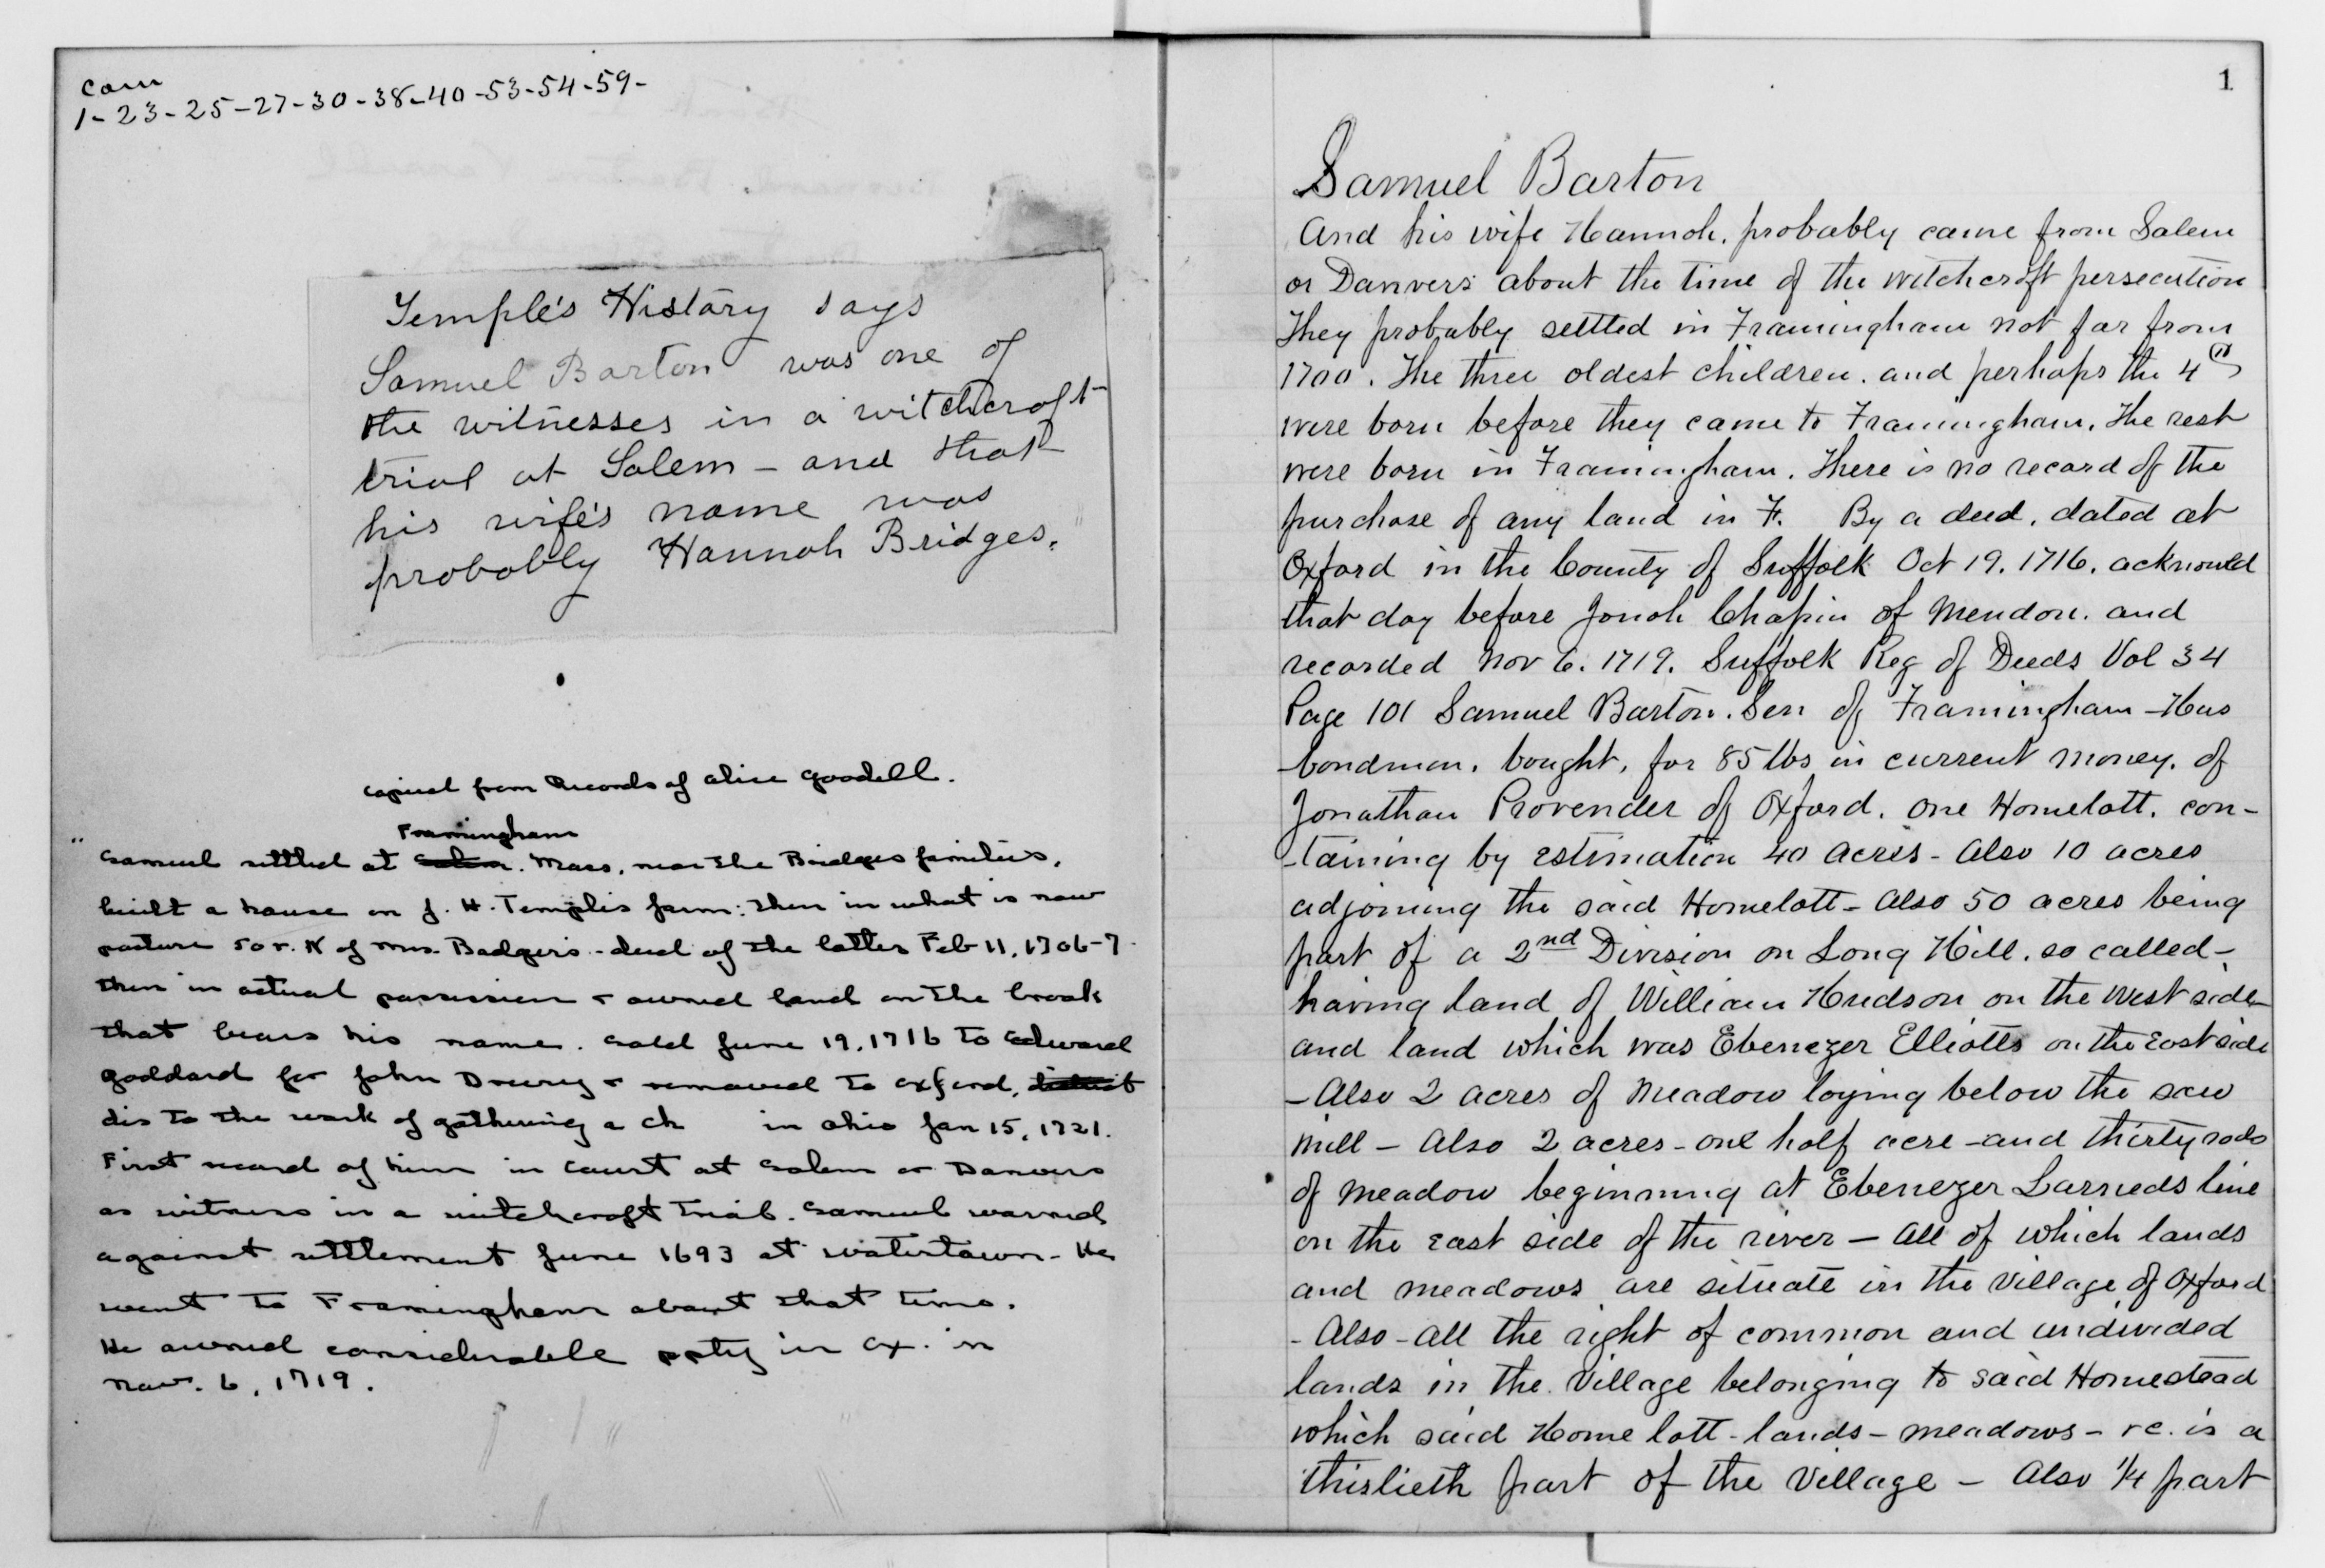 Cam
1-23-25-27-30-38-40-53-54-59-
Temple's History says
Samuel Barton was one of
the witnesses in a witchcraft
trial at Salem - and that
his wife's name was
probably Hannah Bridges.
copied from Records of Alice Goodell.
Framingham
"Samuel settled at Salem. Mass, near the Bridges families,
built a house on J. H. Temple's farm: then in what is now
pasture 50 r. N of Mrs. Badger's - deed of the latter Feb 11, 1706-7
then in actual possession & owned land on the brook
that bears his name. Sold June 19, 1716 to Edward
Goddard for John Drury & removed to Oxford,
dis to the work of gathering a ch in ohio Jan 15, 1721.
First record of him in court at Salem or Danvers
as witness in a witchcraft trial. Samuel warned
against settlement June 1693 at Watertown - He
went to Framingham about that time.
He owned considerable ppty in Ox. in
Nov. 6, 1719.
1
Samuel Barton
And his wife Hannah, probably came from Salem
or Danvers about the time of the witchcraft persecution
They probably settled in Framingham not far from
1700. The three oldest children. and perhaps the 4th
were born before they came to Framingham. The rest
were born in Framingham. There is no record of the
purchase of any land in F. By a deed, dated at
Oxford in the County of Suffolk Oct 19. 1716. acknowld
that day before Jonah Chapin of Mendon. and
recorded Nov 6. 1719. Suffolk Reg of Deeds Vol 34
Page 101 Samuel Barton. Sen of Framingham - Hus
bondman, bought, for 85 lbs in current money. of
Jonathan Provender of Oxford. one Homelott. con-
-taining by estimation 40 acres - Also 10 acres
adjoining the said Homelott - Also 50 acres being
part of a 2nd Division on Long Hill. so called -
having land of William Hudson on the west side
and land which was Ebenezer Elliotts on the east side
- Also 2 acres of Meadow laying below the saw
mill - Also 2 acres - one half acre - and thirty rods
of meadow beginning at Ebenezer Larneds line
on the east side of the river - All of which lands
and meadows are situate in the village of Oxford
- Also - all the right of common and undivided
lands in the village belonging to said Homestead
which said Home lott - lands - meadows - &c. is a
thirtieth part of the village - Also 1/4 part